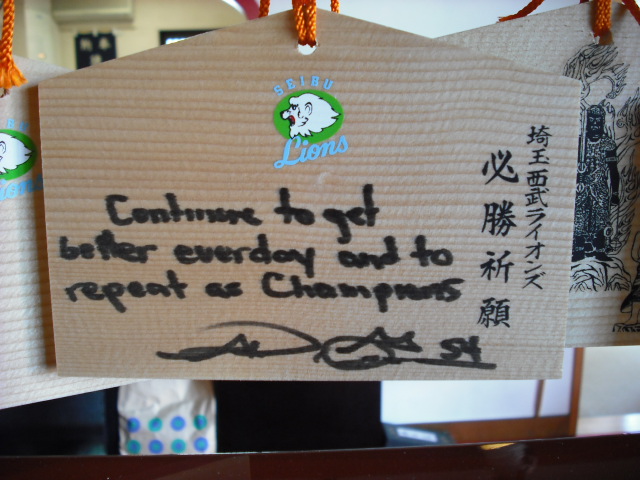 SEIBU
Lions
埼玉西武ライオンズ
必勝祈願
Continue to get
better everday and to
repeat as Champions
54